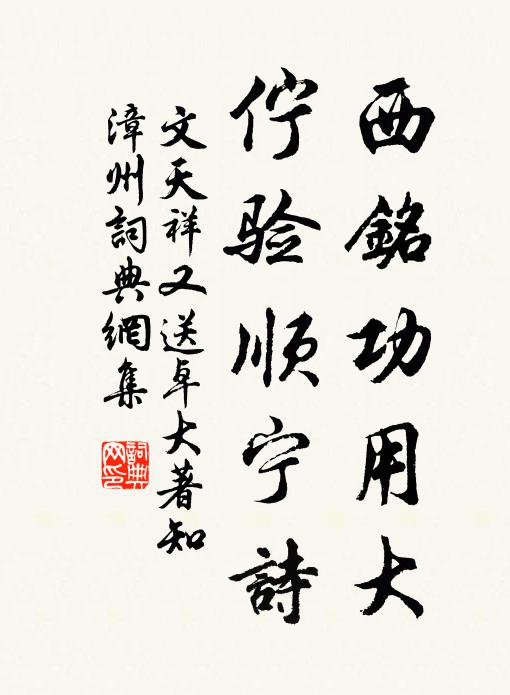 西銘功用大
佇验顺宁詩
文天祥又送卓大著知
漳州詞典網集
詞典
网印